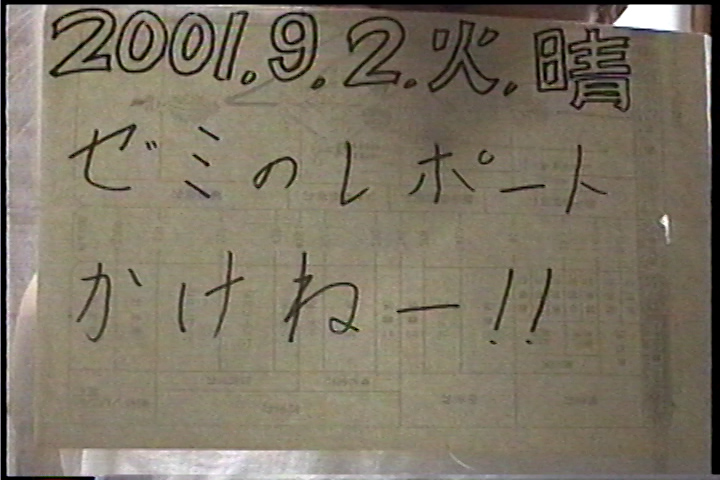 2001.9.2.火.晴
ゼミのレポート
かけねー!!